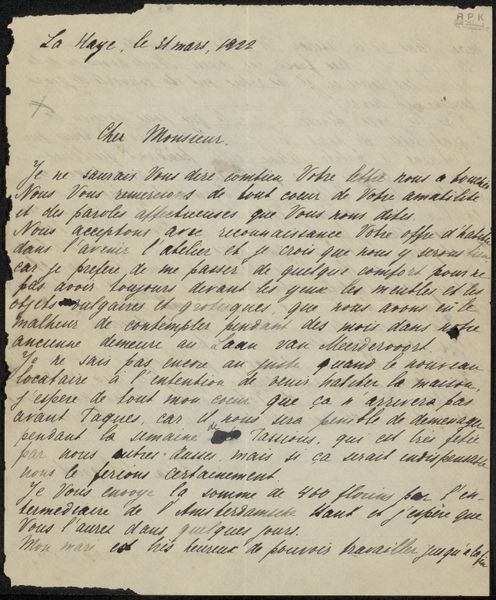 RPK
La Haye, le 31 mars, 1922
Cher Monsieur.
Je ne saurais Vous dire combien Votre lettre nous a touchés
Nous Vous remercions de tout coeur de Votre amabilité
et des paroles affectueuses que Vous nous dites
Nous acceptons avec reconnaissance Votre offre d'habiter
dans l'avenir l'atelier et je crois que nous y serons bien
car je préfère de me passer de quelque comfort pour ne
pas avoir toujours devant les yeux les meubles et les
objets vulgaires et grotesques, que nous avons eu le
malheur de contempler pendant des mois dans notre
ancienne demeure au Laan van Meerdervoort.
Je ne sais pas encore au juste quand le nouveau
locataire à l'intention de venir habiter la maison,
j'espère de tout mon coeur que ça n'arrivera pas
avant Paques, car il nous sera penible de demenager
pendant la semaine de Passions, qui est très fetée
par nous autres russes, mais si ça serait indispensable
nous le ferions certainement.
Je Vous envoye la somme de 400 florins par l'en-
termediaire de l'Amsterdamsche Bank et j'espère que
Vous l'aurez dans quelques jours.
Mon mari est très heureux de pouvoir travailler jusqu'à la fin